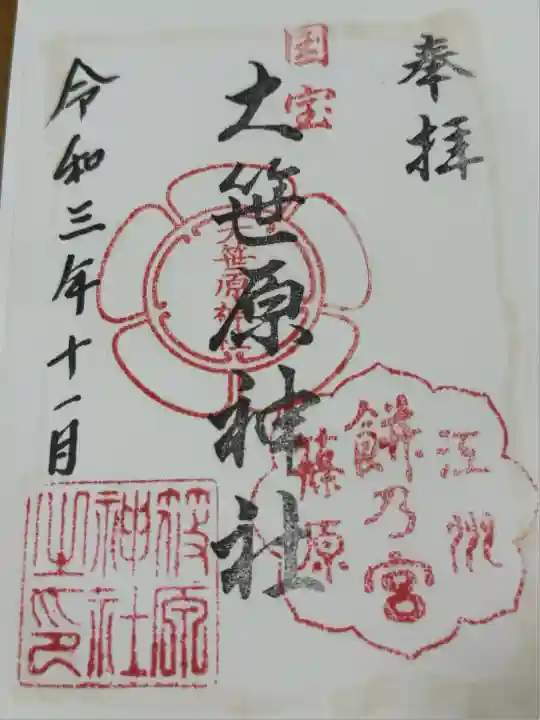 奉拝
国宝
大笹原神社
令和三年十一月
大笹原神社
江州
餅乃宮
篠原
篠原
神社
之印